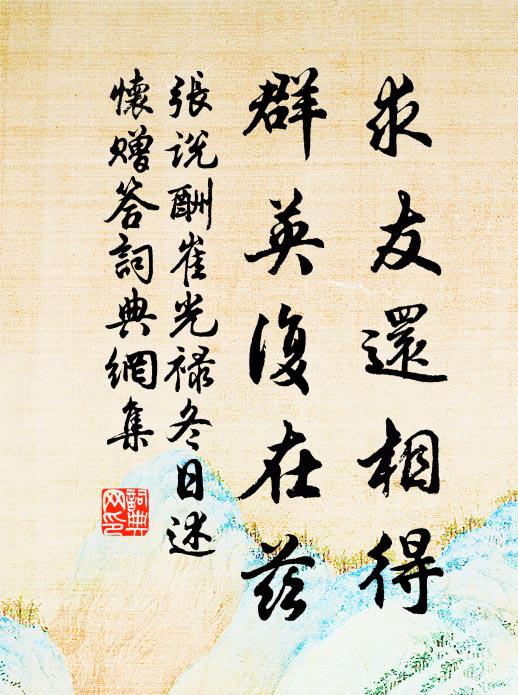 求友還相得
群英復在茲
張說酬崔光祿冬日述
懷贈答詞典網集
詞典
网印